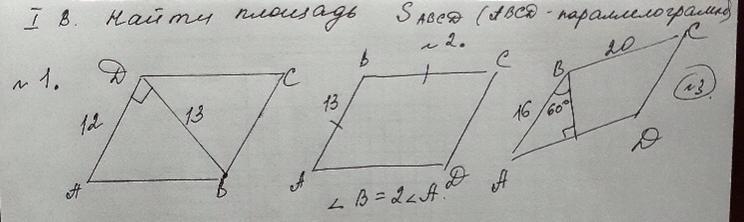 I В. Найти площадь S ABCD (ABCD - параллелограмм)
№1. D C 12 13 A B
№2. B C 13 A D ∠B = 2∠A.
№3. B 20 C 16 60° A D